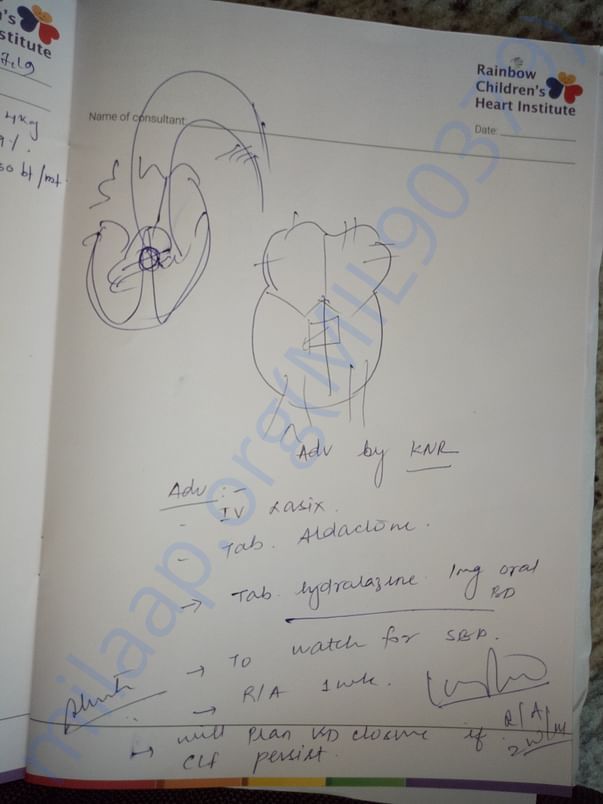 n's
stitute
7.19
4kg
9%.
50 bt/mt.
Rainbow
Children's
Heart Institute
Name of consultant:
Date:
Adv by KNR
Adv :-
- IV Lasix.
- Tab. Aldactone.
→ Tab. hydralazine 1mg oral
BD
→ To watch for SBP.
→ R/A 1 wk.
→ will plan closure if
CCF persist.
R/A
milaap.org(MIL90379